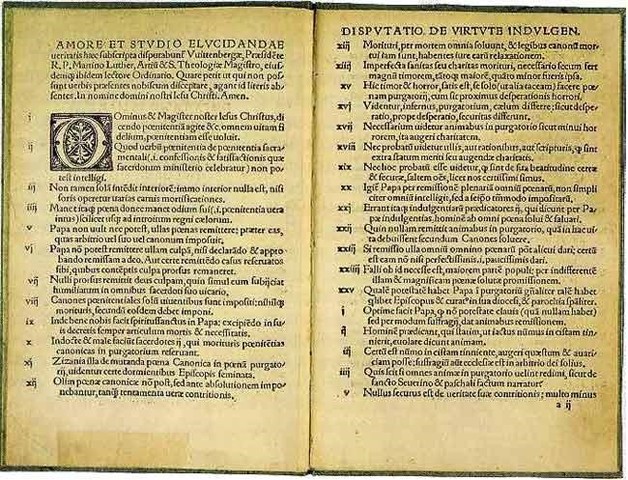 AMORE ET STVDIO ELVCIDANDAE
ueritatis hæc subscripta disputabunť Vuittenbergæ, Præsidēte
R. P. Martino Luther, Artiū & S. Theologiæ Magistro, eiuſ-
demq; ibidem lectore Ordinario. Quare petit ut qui non poſ-
sunt uerbis præsentes nobiscum disceptare, agant id literis ab-
sentes. In nomine domini nostri Iesu Christi. Amen.
i Ominus & Magister noster Iesus Christus, di
cendo pœnitentiā agite &c. omnem uitam fi
delium, pœnitentiam esse uoluit.
ij Quod uerbū pœnitentia de pœnitentia sacra-
mentali (.i. confessionis & satisfactionis quæ
sacerdotum ministerio celebratur) non po-
test intelligi.
iij Non tamen solā intēdit interiorē: immo interior nulla est, nisi
foris operetur uarias carnis mortificationes.
iiij Manet itaq; pœna donec manet odium sui (.i. pœnitentia uera
intus) scilicet usq; ad introitum regni cælorum.
v Papa non uult nec potest, ullas pœnas remittere; præter eas,
quas arbitrio uel suo uel canonum imposuit.
vj Papa nō potest remittere ullam culpā, nisi declarādo & appro
bando remissam a deo. Aut certe remittēdo casus reseruatos
sibi, quibus contēptis culpa prorsus remaneret.
vij Nulli prorsus remittit deus culpam, quin simul eum subijciat
humiliatum in omnibus sacerdoti suo uicario.
viij Canones pœnitentiales solū uiuentibus sunt impositi; nihilq;
morituris, secundū eosdem debet imponi.
ix Inde bene nobis facit spiritussanctus in Papa: excipiēdo in su-
is decretis semper articulum mortis & necessitatis.
x Indocte & male faciūt sacerdotes ij, qui morituris pœnitētias
canonicas in purgatorium reseruant.
xj Zizania illa de mutanda pœna Canonica in pœnā purgato-
rij, uidentur certe dormientibus Episcopis seminata.
xij Olim pœnæ canonicæ nō post, sed ante absolutionem impo-
nebantur, tanq̃ tentamenta ueræ contritionis.
DISPVTATIO DE VIRTVTE INDVLGEN.
xiij Morituri, per mortem omnia soluunt, & legibus canonū mor-
tui iam sunt, habentes iure earū relaxationem.
xiiij Imperfecta sanitas seu charitas morituri, necessario secum fert
magnū timorem, tātoq; maiorē, quāto minor fuerit ipsa.
xv Hic timor & horror, satis est, se solo (ut alia taceam) facere pœ-
nam purgatorij, cum sit proximus desperationis horrori.
xvj Videntur, infernus, purgatorium, cælum differre; sicut despe-
ratio, prope desperatio, securitas differunt.
xvij Necessarium uidetur animabus in purgatorio sicut minui hor-
rorem, ita augeri charitatem.
xviij Nec probatū uidetur ullis, aut rationibus, aut scripturis, q̃ sint
extra statum meriti seu augendæ charitatis.
xix Nec hoc probatū esse uidetur, q̃ sint de sua beatitudine certæ
& securæ, saltem oēs, licet nos certissimi simus.
xx Igit̃ Papa per remissionē plenariā omniū pœnarū, non simpli
citer omniū intelligit, sed a seipso tātmmodo impositarū.
xxj Errant itaq; indulgentiarū prædicatores ij, qui dicunt per Pa-
pæ indulgentias, hominē ab omni pœna solui & saluari.
xxij Quin nullam remittit animabus in purgatorio, quā in hac ui-
ta debuissent secundum Canones soluere.
xxiij Si remissio ulla omniū omnino pœnarū pōt alicui dari; certū
est eam nō nisi perfectissimis, i. paucissimis dari.
xxiiij Falli ob id necesse est, maiorem partē populi: per indifferentē
illam & magnificam pœnæ solutæ promissionem.
xxv Qualē potestatē habet Papa ī purgatoriū gñaliter talē habet
q̃libet Episcopus & curat⁹ in sua diocesi, & parochia sp̄aliter.
i Optime facit Papa, q̃ nō potestate clauis (quā nullam habet)
sed per modum suffragij, dat animabus remissionem.
ij Hominē prædicant, qui statim, ut iactus nūmus in cistam tin-
nierit, euolare dicunt animam.
iij Certū est nūmo in cistam tinniente, augeri quæstum & auari-
ciam posse; suffragiū aūt ecclesiæ est in arbitrio dei solius.
iiij Quis scit si omnes animæ in purgatorio uelint redimi, sicut de
sancto Seuerino & paschali factum narratur
v Nullus securus est de ueritate suæ contritionis; multo minus
a ij